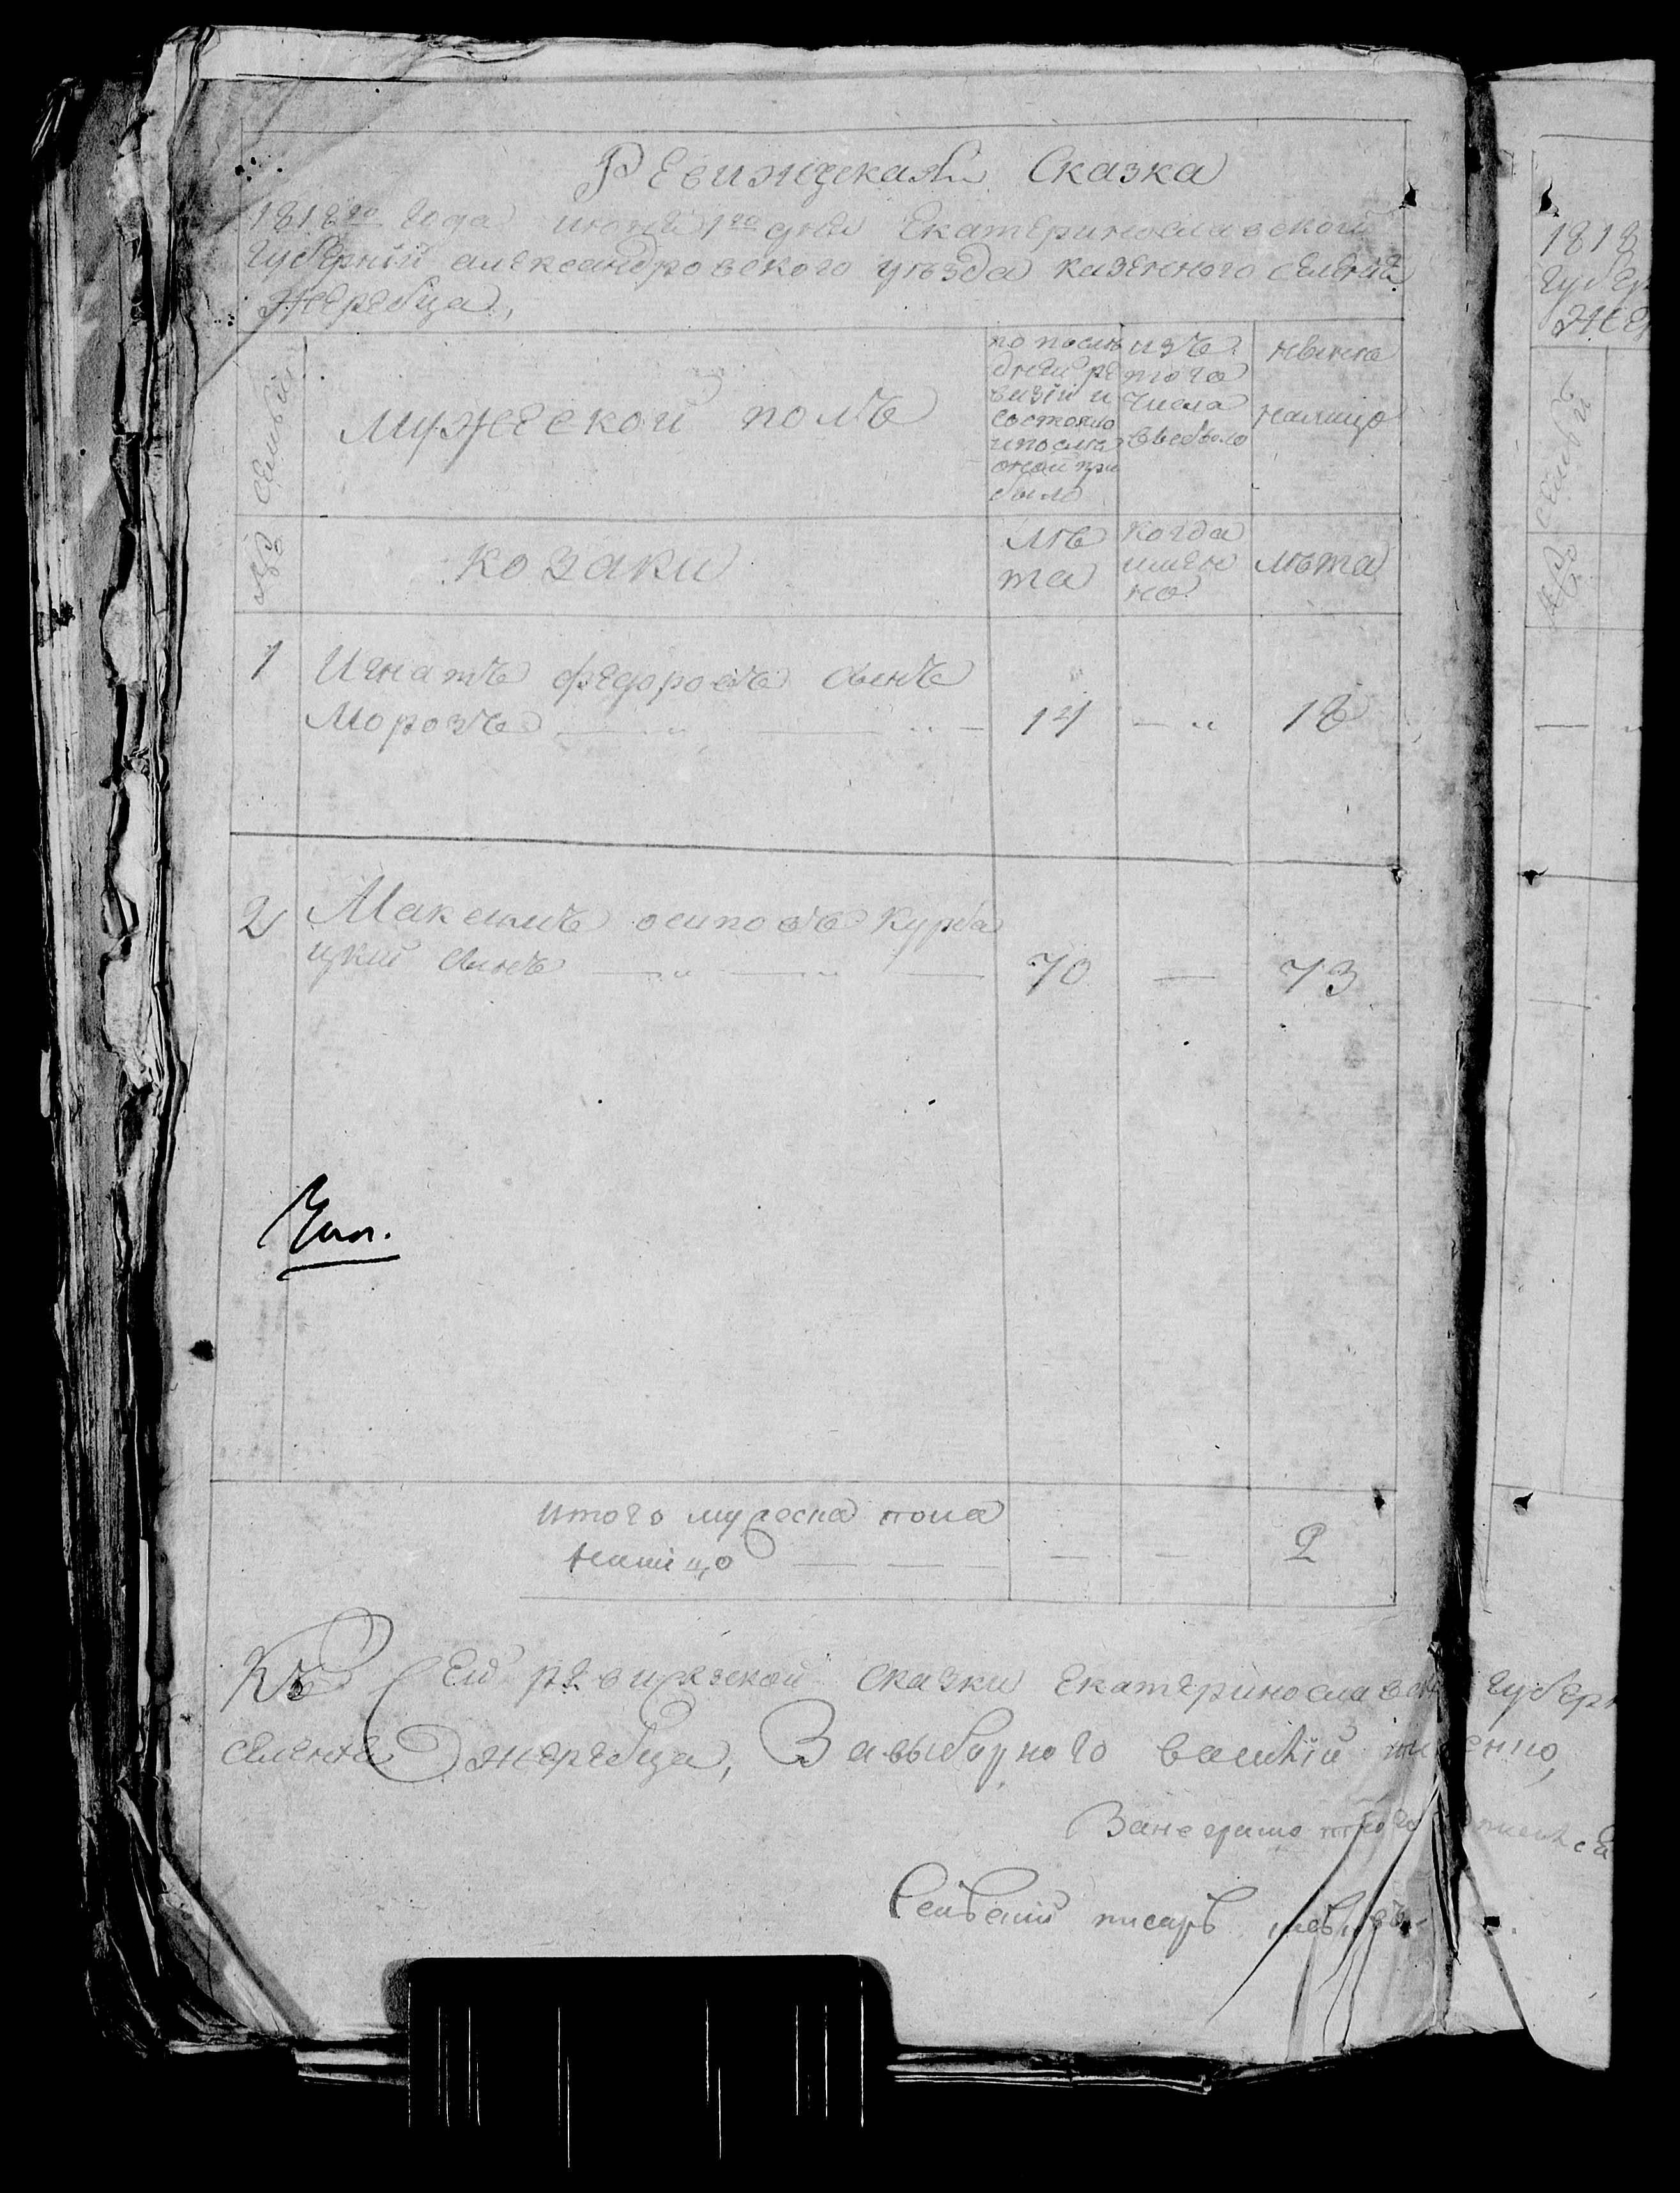 Ревижская Сказка
1818го Года июня 1го дня Екатеринославской
Губернїи александровского уѣзда казенного селенїя
Жеребца,
№ семьи
мужеской полъ
по послѣ
дней ре
визїи и
состояло
и послѣ
оной при
было
изъ
того
числа
выбыло
нынѣ
налицо
козаки
лѣ
та
когда
имен
но
лѣта
1 Игнатъ федоровъ сынъ
Морозъ 14 — 18
2 Максимъ осиповъ курба
цкий сынъ 70 — 73
итого мужеска пола
налицо — — 2
Къ Сей ревижской сказки екатеринославской губерн
селенїя жеребца, За выборного
Занеграмо
Сельский писарь
1818
губер
Же
№ семьи